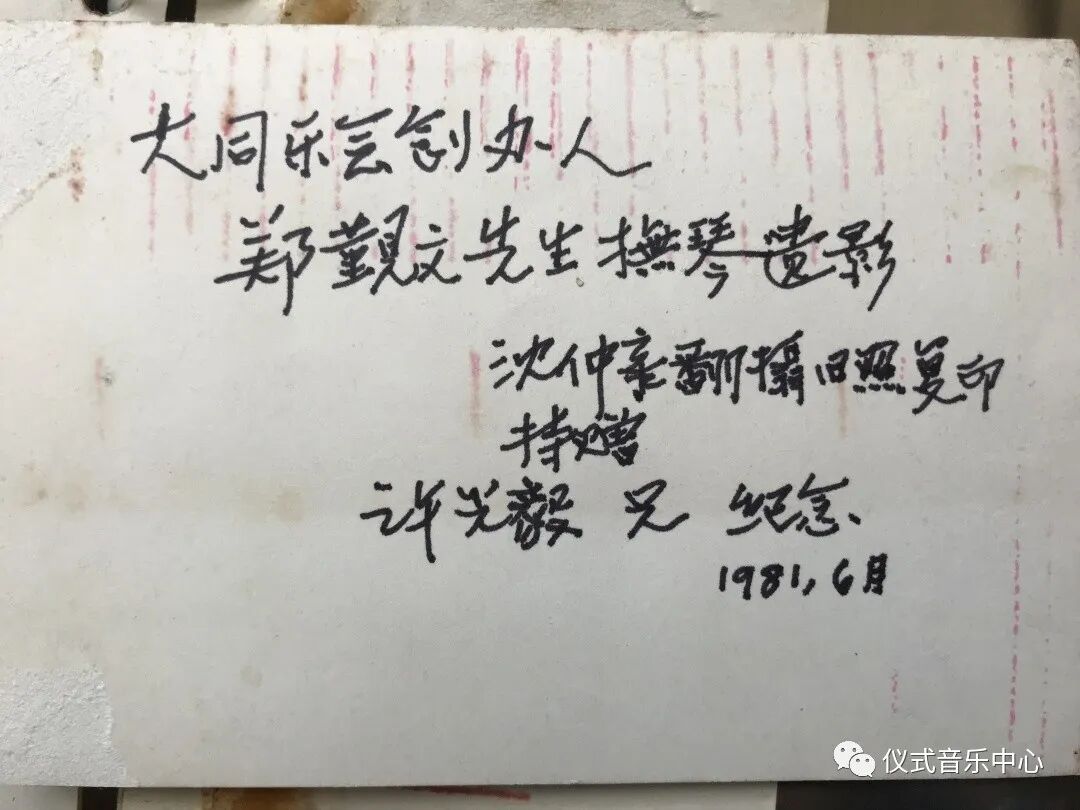 大同乐会创办人
郑觐文先生撫琴遗影
沈仲章翻攝旧照复印
持赠
许光毅 兄 纪念、
1981,6月
仪式音乐中心